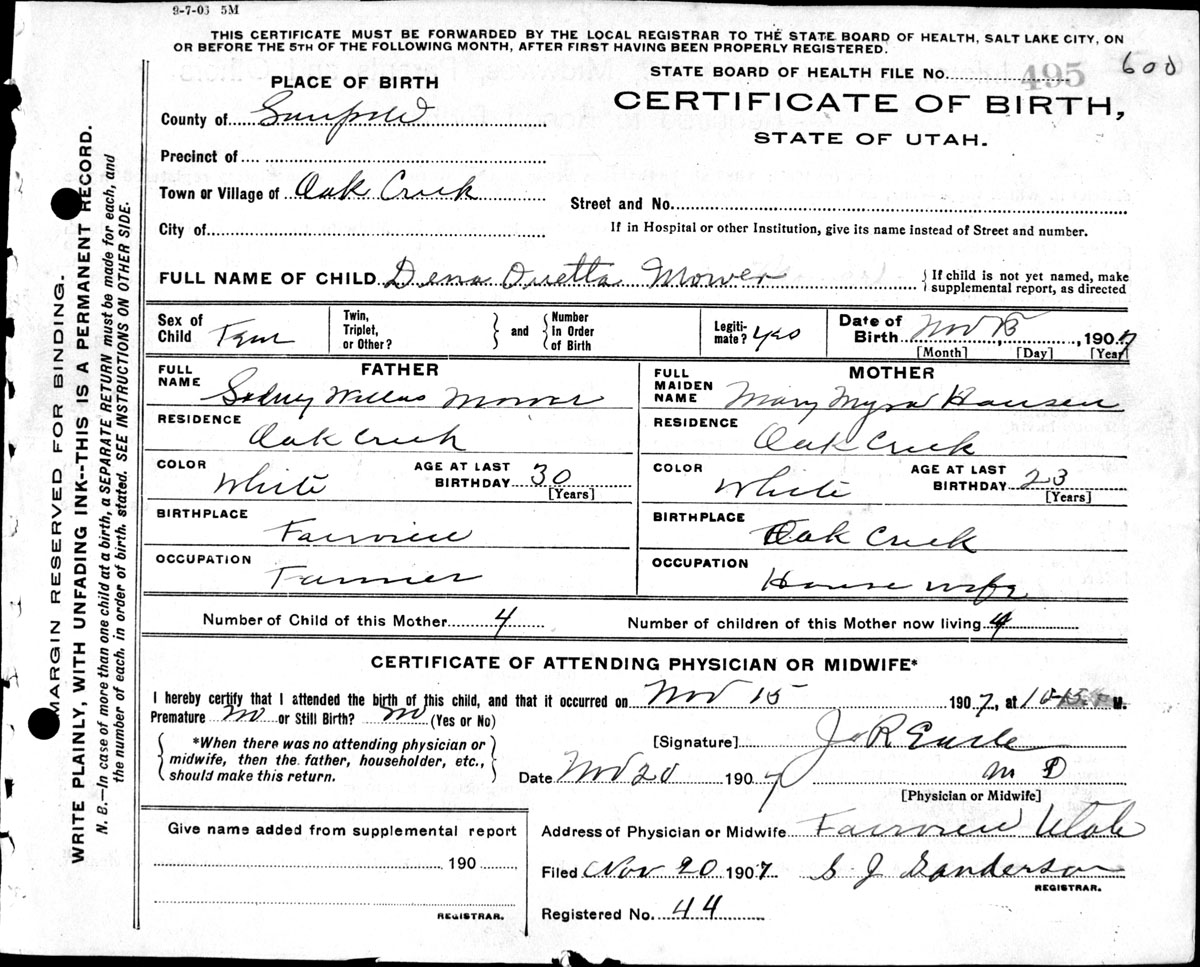 9-7-06 5M
THIS CERTIFICATE MUST BE FORWARDED BY THE LOCAL REGISTRAR TO THE STATE BOARD OF HEALTH, SALT LAKE CITY, ON
OR BEFORE THE 5TH OF THE FOLLOWING MONTH, AFTER FIRST HAVING BEEN PROPERLY REGISTERED.
PLACE OF BIRTH
STATE BOARD OF HEALTH FILE No. 495 600
County of
CERTIFICATE OF BIRTH,
STATE OF UTAH.
Precinct of
Town or Village of Oak Creek
Street and No.
City of
If in Hospital or other Institution, give its name instead of Street and number.
FULL NAME OF CHILD Dena Mower {If child is not yet named, make supplemental report, as directed
Sex of Child Fem Twin, Triplet, or Other? } and { Number In Order of Birth Legitimate? yes Date of Birth Nov 15, 1907
[Month] [Day] [Year]
FATHER
MOTHER
FULL NAME Sidney Mower
FULL MAIDEN NAME Mary Myra Hansen
RESIDENCE Oak Creek
RESIDENCE Oak Creek
COLOR White AGE AT LAST BIRTHDAY 30 [Years]
COLOR White AGE AT LAST BIRTHDAY 23 [Years]
BIRTHPLACE Fairview
BIRTHPLACE Oak Creek
OCCUPATION Farmer
OCCUPATION House wife
Number of Child of this Mother 4 Number of children of this Mother now living 4
CERTIFICATE OF ATTENDING PHYSICIAN OR MIDWIFE*
I hereby certify that I attended the birth of this child, and that it occurred on Nov 15 1907, at M.
Premature No or Still Birth? No (Yes or No)
{*When there was no attending physician or midwife, then the father, householder, etc., should make this return.}
[Signature]
Date Nov 20 1907 M D
[Physician or Midwife]
Give name added from supplemental report
190
REGISTRAR.
Address of Physician or Midwife Fairview Utah
Filed Nov 20 1907 S J Sanderson
REGISTRAR.
Registered No. 44
MARGIN RESERVED FOR BINDING.
WRITE PLAINLY, WITH UNFADING INK--THIS IS A PERMANENT RECORD.
N. B.—In case of more than one child at a birth, a SEPARATE RETURN must be made for each, and
the number of each, in order of birth, stated. SEE INSTRUCTIONS ON OTHER SIDE.